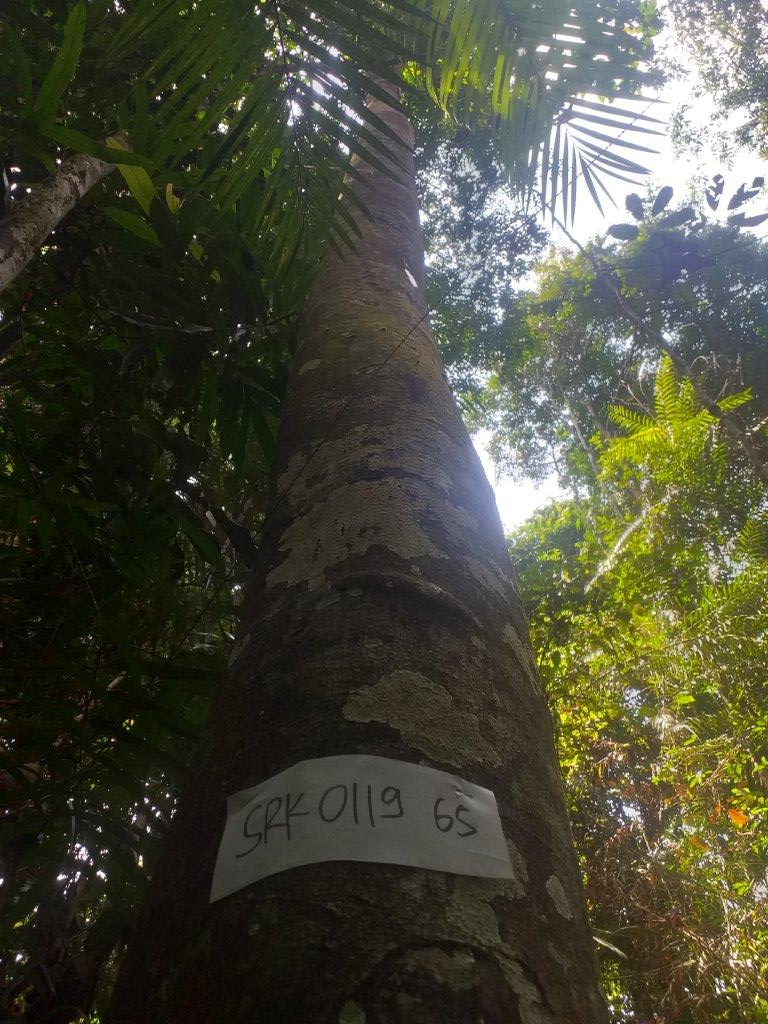 SRK 0119 65